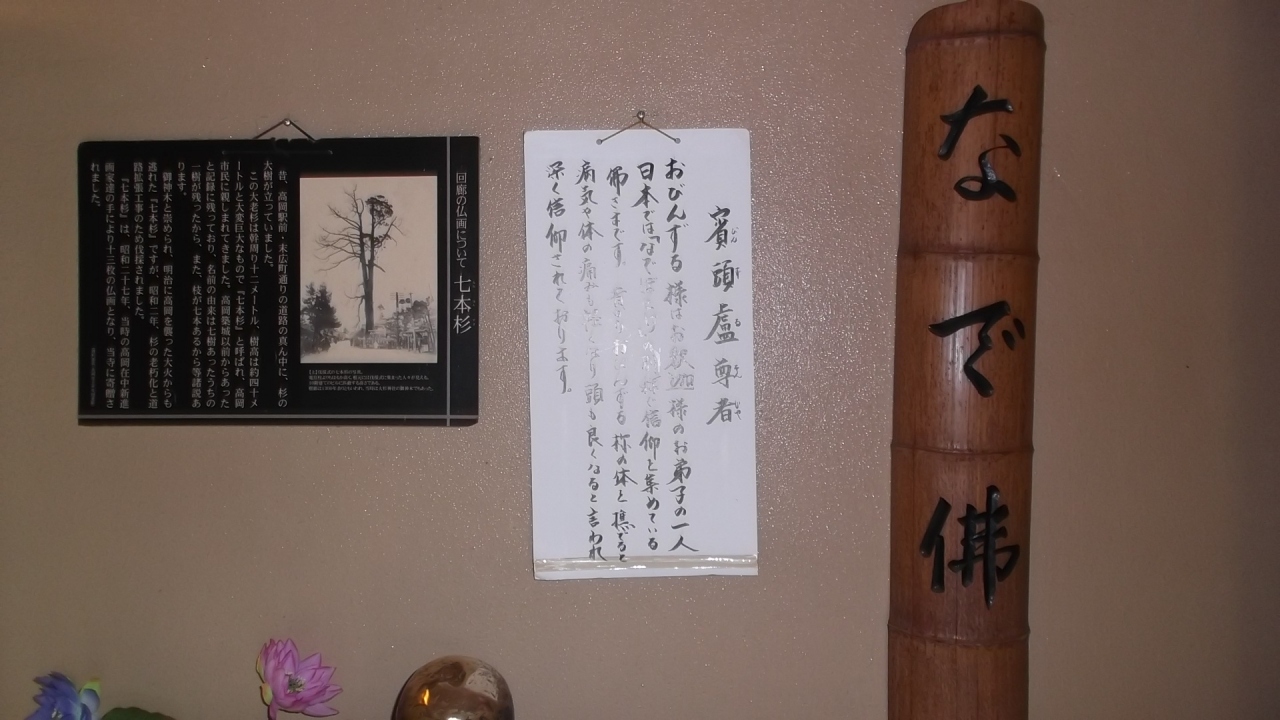 なで佛
賓頭盧尊者
おびんずる様はお釈迦様のお弟子の一人
日本では「なでぼとけ」の 信仰を集めている
佛さまです。 様の体を撫でると
病気や体の痛みも なり頭も良くなると言われ
深く信仰されております。
回廊の仏画について 七本杉
昔、高岡駅前・末広町通りの道路の真ん中に、杉の
大樹が立っていました。
この大老杉は幹周り十二メートル、樹高は約四十メ
ートルと大変巨大なもので『七本杉』と呼ばれ、高岡
市民に親しまれてきました。高岡築城以前からあった
と記録に残っており、名前の由来は七樹あったうちの
一樹が残ったから、また、枝が七本あるから等諸説あ
ります。
御神木と崇められ、明治に高岡を襲った大火からも
逃れた『七本杉』ですが、昭和二年、杉の老朽化と道
路拡張工事のため伐採されました。
『七本杉』は、昭和二十七年、当時の高岡在中新進
画家達の手により十三枚の仏画となり、当寺に寄贈さ
れました。